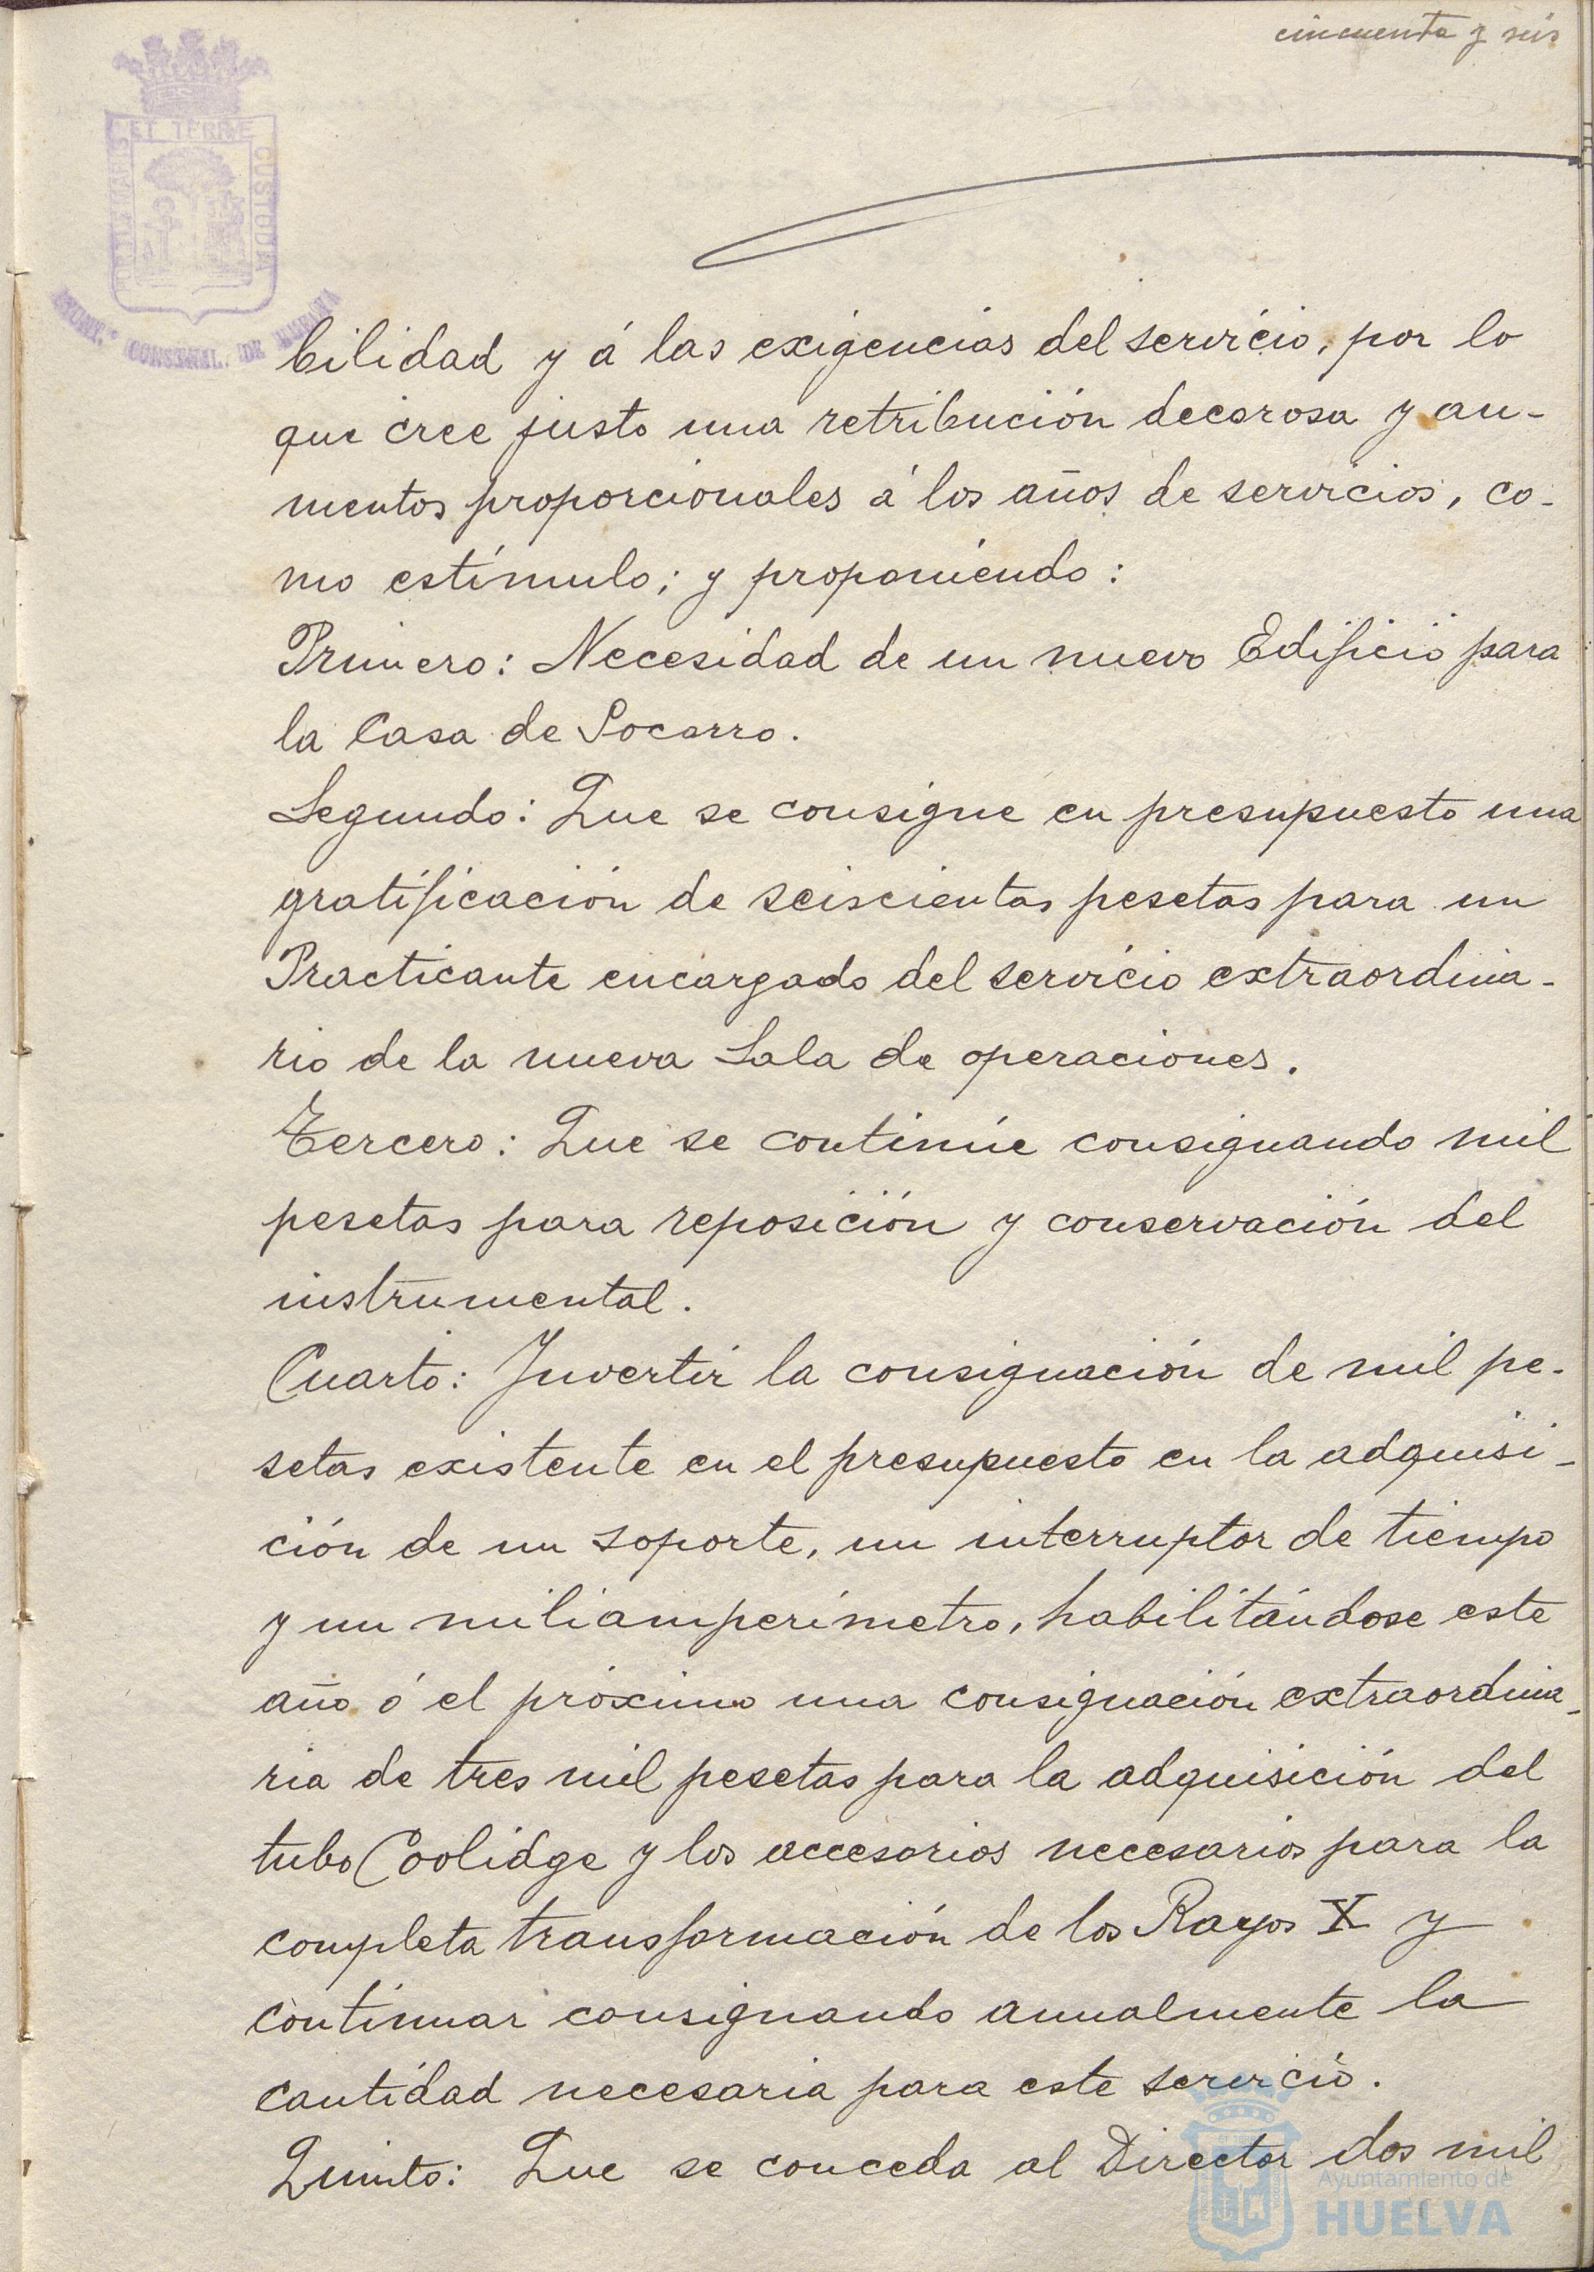 cincuenta y seis
PORTUS MARIS
ET TERRÆ
CUSTODIA
bilidad y á las exigencias del servicio, por lo
que cree justo una retribución decorosa y au-
mentos proporcionales á los años de servicios, co-
mo estímulo; y proponiendo:
Primero: Necesidad de un nuevo Edificio para
la Casa de Socorro.
Segundo: Que se consigne en presupuesto una
gratificación de seiscientas pesetas para un
Practicante encargado del servicio extraordina-
rio de la nueva Sala de operaciones.
Tercero: Que se continúe consignando mil
pesetas para reposición y conservación del
instrumental.
Cuarto: Invertir la consignación de mil pe-
setas existente en el presupuesto en la adquisi-
ción de un soporte, un interruptor de tiempo
y un miliamperímetro, habilitándose este
año ó el próximo una consignación extraordina-
ria de tres mil pesetas para la adquisición del
tubo Coolidge y los accesorios necesarios para la
completa transformación de los Rayos X y
continuar consignando anualmente la
cantidad necesaria para este servicio.
Quinto: Que se conceda al Director dos mil
Ayuntamiento de
HUELVA